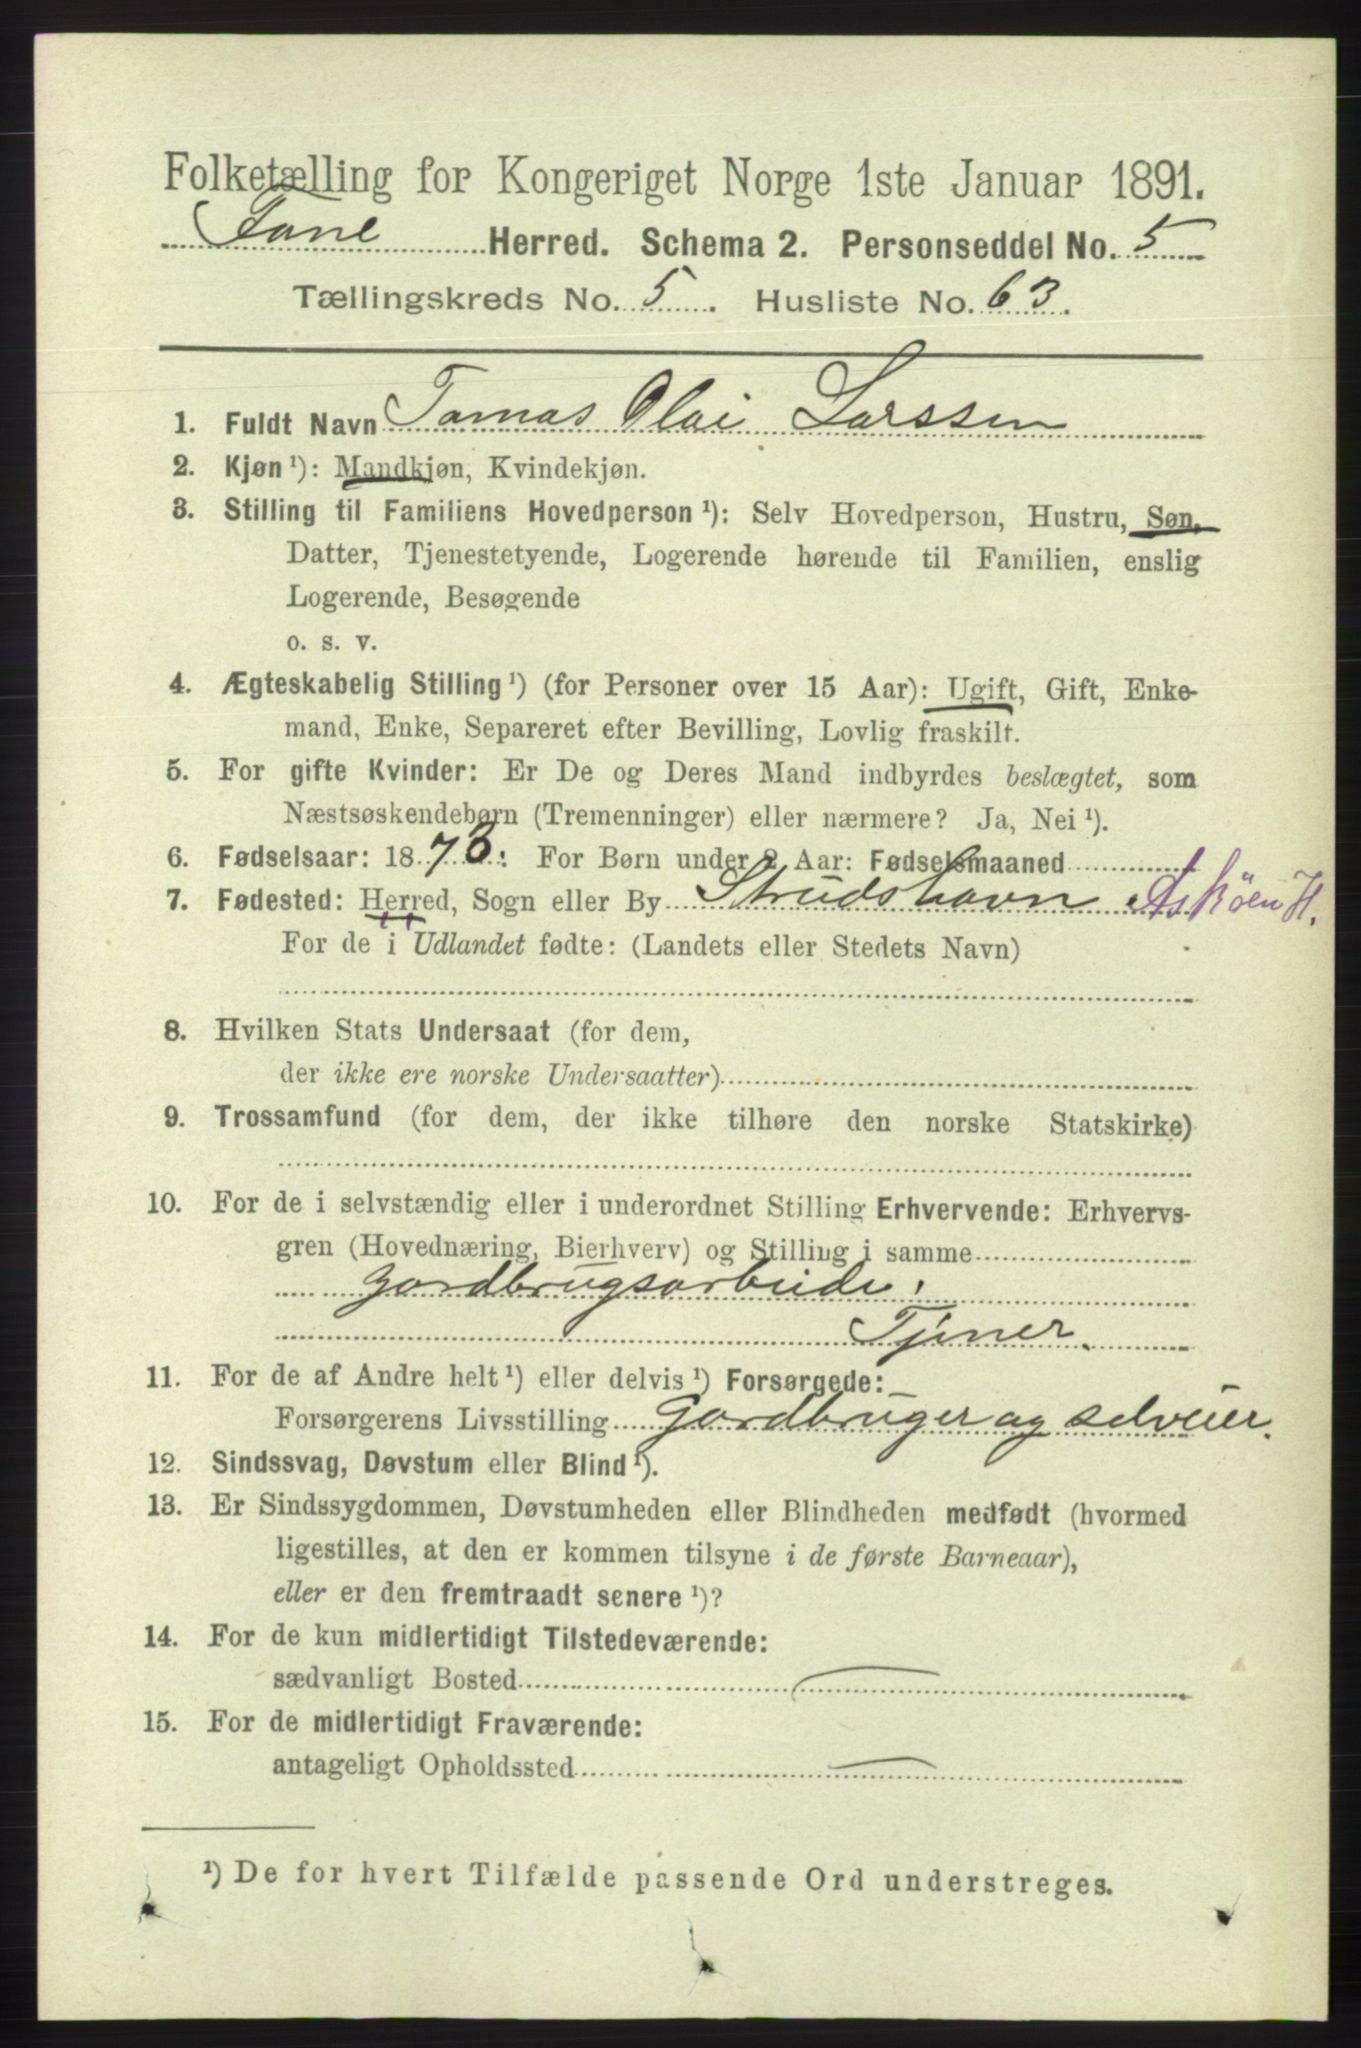 Folketælling for Kongeriget Norge 1ste Januar 1891.
Fane Herred. Schema 2. Personseddel No. 5
Tællingskreds No. 5. Husliste No. 63.
1. Fuldt Navn Tomas Olai Larssen
2. Kjøn ¹): Mandkjøn, Kvindekjøn.
3. Stilling til Familiens Hovedperson ¹): Selv Hovedperson, Hustru, Søn,
Datter, Tjenestetyende, Logerende hørende til Familien, enslig
Logerende, Besøgende
o. s. v.
4. Ægteskabelig Stilling ¹) (for Personer over 15 Aar): Ugift, Gift, Enke-
mand, Enke, Separeret efter Bevilling, Lovlig fraskilt.
5. For gifte Kvinder: Er De og Deres Mand indbyrdes beslægtet, som
Næstsøskendebørn (Tremenninger) eller nærmere? Ja, Nei ¹).
6. Fødselsaar: 1873. For Børn under 2 Aar: Fødselsmaaned
7. Fødested: Herred, Sogn eller By Strudshavn Asköen H.
For de i Udlandet fødte: (Landets eller Stedets Navn)
8. Hvilken Stats Undersaat (for dem,
der ikke ere norske Undersaatter)
9. Trossamfund (for dem, der ikke tilhøre den norske Statskirke)
10. For de i selvstændig eller i underordnet Stilling Erhvervende: Erhvervs-
gren (Hovednæring, Bierhverv) og Stilling i samme
Gardbrugsarbeide.
Tjener.
11. For de af Andre helt ¹) eller delvis ¹) Forsørgede:
Forsørgerens Livsstilling Gardbruger og selveier.
12. Sindssvag, Døvstum eller Blind ¹).
13. Er Sindssygdommen, Døvstumheden eller Blindheden medfødt (hvormed
ligestilles, at den er kommen tilsyne i de første Barneaar),
eller er den fremtraadt senere ¹)?
14. For de kun midlertidigt Tilstedeværende:
sædvanligt Bosted
15. For de midlertidigt Fraværende:
antageligt Opholdssted
¹) De for hvert Tilfælde passende Ord understreges.